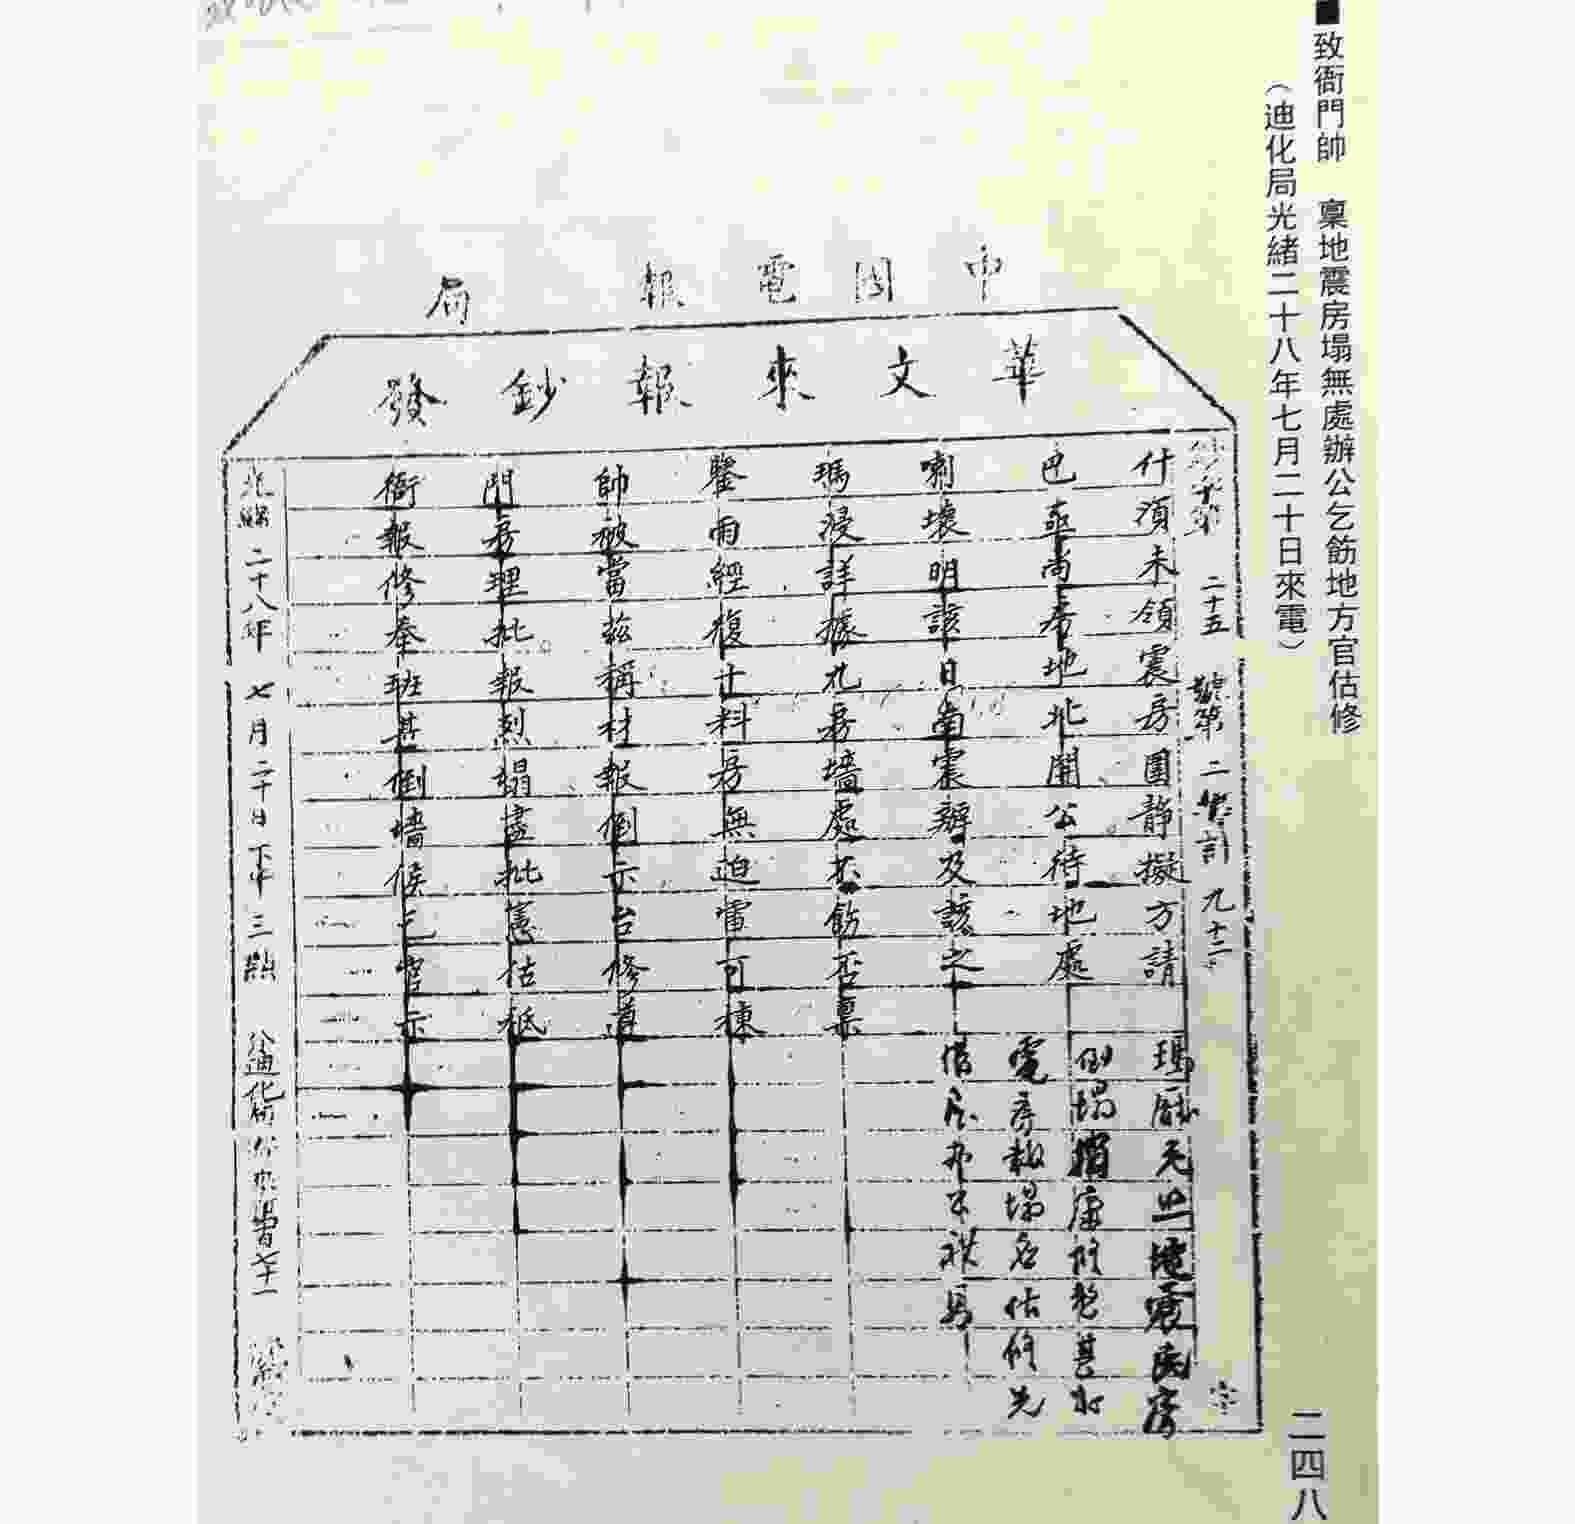 ■致衙門帥 稟地震房塌無處辦公乞飭地方官估修
（迪化局光緒二十八年七月二十日來電）
中國電報局
華文來報鈔發
二十五 號第 二 等計 九十二
衙門帥鑒瑪喇巴什
報房被雨浸壞亟湏
修理當經詳明尚未
奉批茲復據該房領
班報稱十九日地震
甚烈材料房南北房圍
倒塌報房墻震開靜
墻盡倒無處辦公擬
候批示迫不及待方
乞憲台電飭該地請
官估修可否之處
示祗道棟稟
地震民房
倒塌
電房報塌 估修先
光緒 二十八年 七月二十日下午三點
二四八